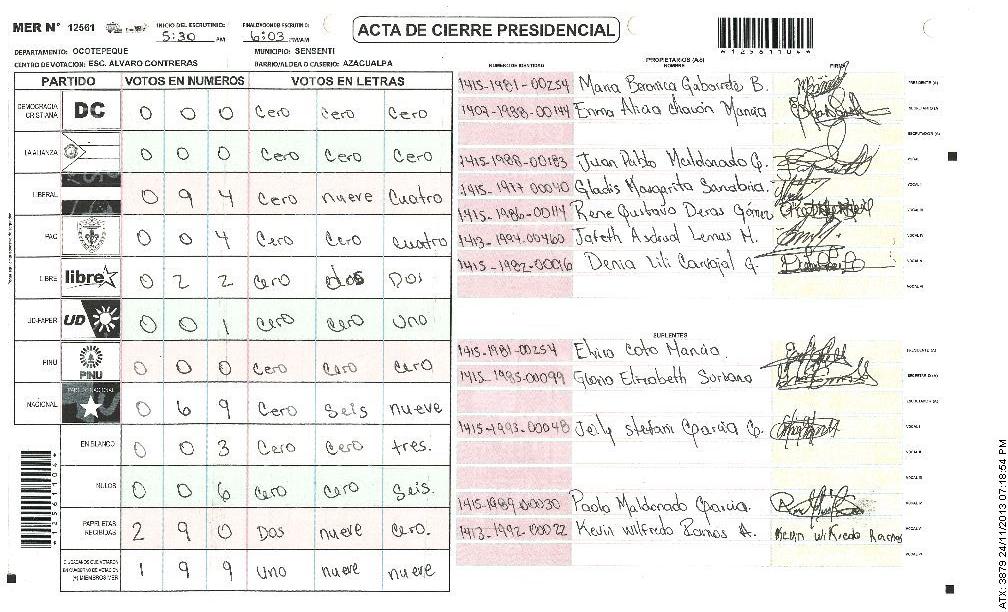 MER Nº 12561
INICIO DEL ESCRUTINIO: 5:30 AM
FINALIZACION DE ESCRUTINIO: 6:03 PM/AM
ACTA DE CIERRE PRESIDENCIAL
*12561104*
DEPARTAMENTO: OCOTEPEQUE
MUNICIPIO: SENSENTI
CENTRO DE VOTACION: ESC. ALVARO CONTRERAS
BARRIO/ALDEA O CASERIO: AZACUALPA
PARTIDO VOTOS EN NUMEROS VOTOS EN LETRAS
DEMOCRACIA CRISTIANA DC 0 0 0 Cero Cero Cero
LA ALIANZA 0 0 0 Cero Cero Cero
LIBERAL 0 9 4 Cero nueve Cuatro
PAC 0 0 4 Cero Cero cuatro
LIBRE libre 0 2 2 Cero dos Dos
UD-FAPER UD 0 0 1 Cero Cero Uno
PINU PINU 0 0 0 Cero Cero Cero
NACIONAL 0 6 9 Cero Seis nueve
EN BLANCO 0 0 3 Cero Cero tres.
NULOS 0 0 6 Cero Cero Seis.
PAPELETAS RECIBIDAS 2 9 0 Dos nueve Cero.
CIUDADANOS QUE VOTARON EN CUADERNO DE VOTACION (+) MIEMBROS MER 1 9 9 Uno nueve nueve
PROPIETARIOS (AS)
NUMERO DE IDENTIDAD NOMBRE FIRMA
1415-1981-00254 Maria Beronica Gabarrete B. PRESIDENTE (A)
1407-1988-00144 Enma Alicia chacón Mancia SECRETARIO (A)
ESCRUTADOR (A)
1415-1988-00183 Juan Pablo Maldonado G. VOCAL I
1415-1977-00040 Gladis Margarita Sanabria.
1415-1986-00114 Rene Gustavo Deras Gómez
1413-1994-00460 Jafeth Asdrual Lemus M. VOCAL IV
1415-1982-00096 Denia Lili Carvajal G. VOCAL V
VOCAL VI
SUPLENTES
1415-1981-00254 Elvira Coto Mancia. PRESIDENTE (A)
1415-1985-00099 Gloria Elizabeth Surbano SECRETARIO (A)
ESCRUTADOR (A)
1415-1993-00048 Jeily Stefani Garcia G. VOCAL I
VOCAL II
VOCAL III
1415-1989-00030 Paola Maldonado Garcia. VOCAL IV
1413-1992-00022 Kevin Wilfredo Ramos A. Kevin Wilfredo Ramos VOCAL V
VOCAL VI
*12561104*
ATX: 3879 24/11/2013 07:18:54 PM